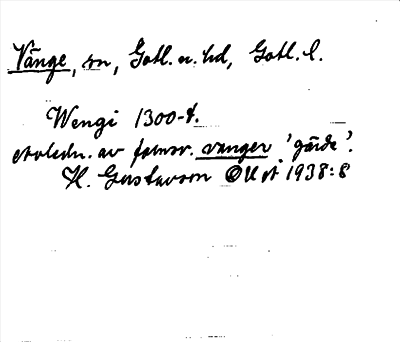 Vänge, sn, Gotl. n. hd, Gotl. l.
Wengi 1300-t.
avledn. av fornsv. vanger 'gärde'.
H. Gustavson OUÅ 1938:8